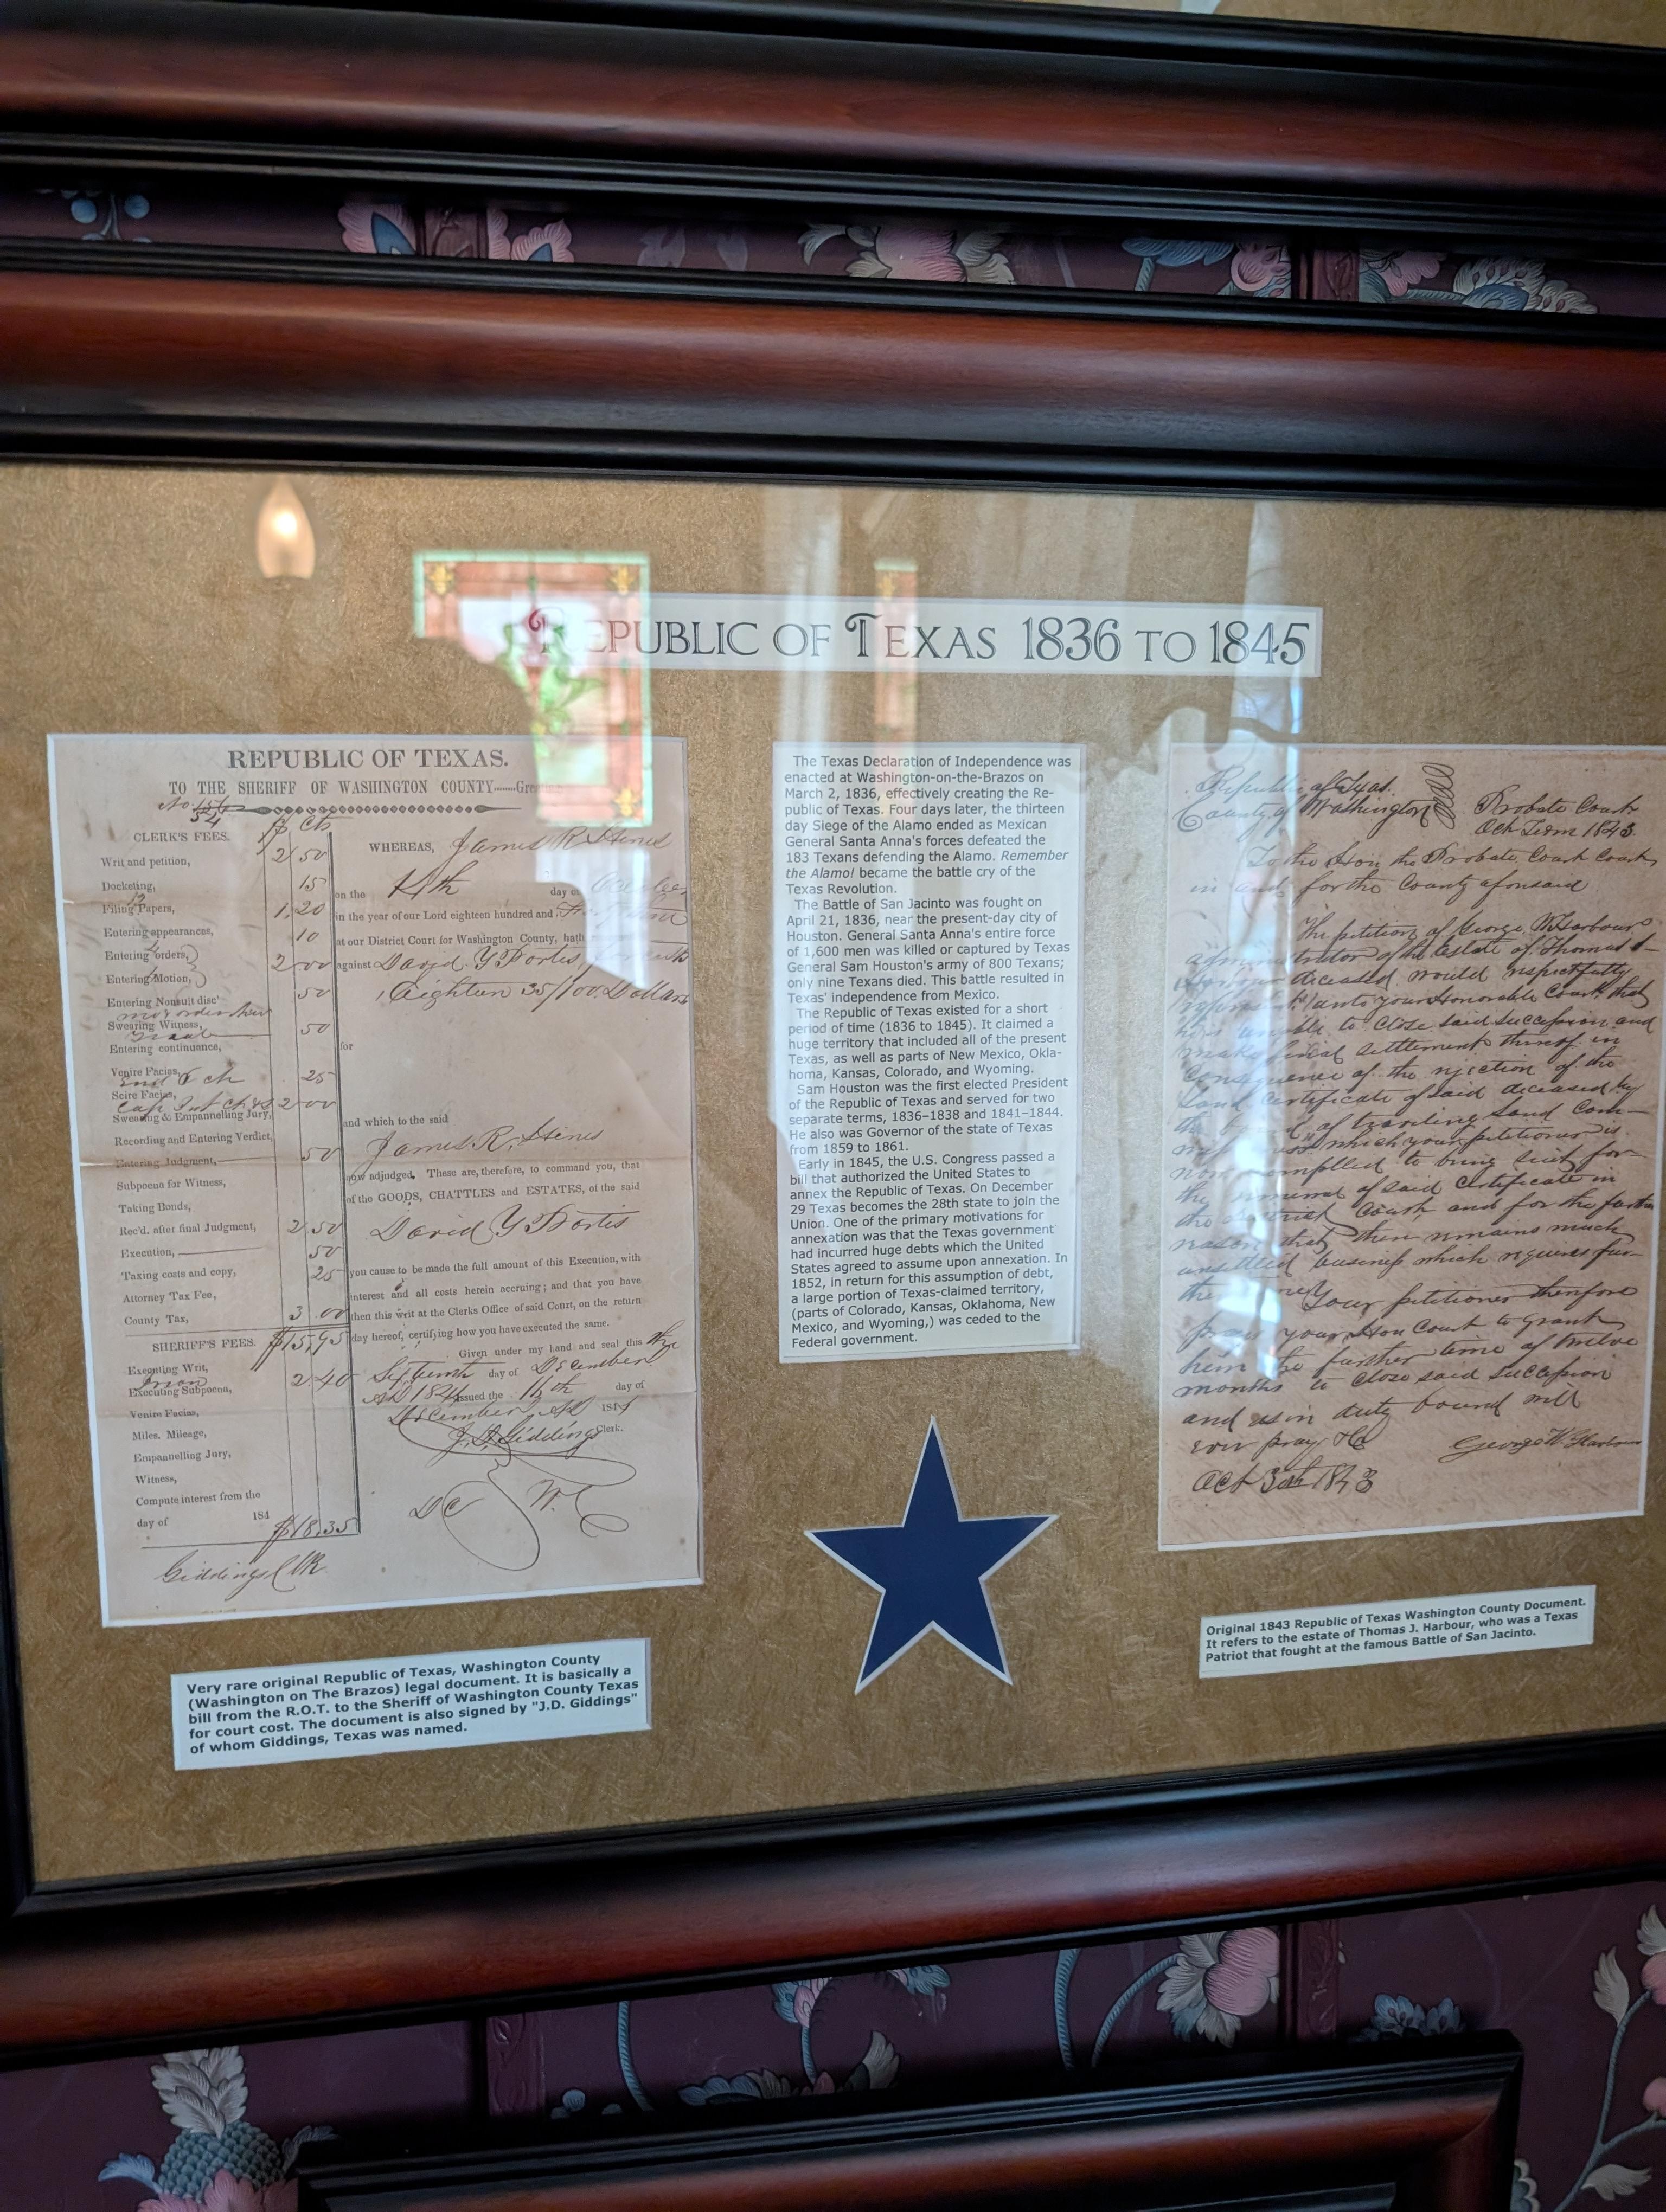 REPUBLIC OF TEXAS 1836 TO 1845
REPUBLIC OF TEXAS.
TO THE SHERIFF OF WASHINGTON COUNTY
No
54
$ Cts
CLERK'S FEES.
Writ and petition, 2 50
Docketing, 15
12
Filing Papers, 1,20
Entering appearances, 10
Entering orders,
Entering Motion, 2 00
Entering Nonsuit disc' 50
Swearing Witness, 50
Entering continuance,
Venire Facias, 25
Scire Facias, 2 00
Swearing & Empannelling Jury,
Recording and Entering Verdict,
Entering Judgment, 50
Subpoena for Witness,
Taking Bonds,
Rec'd. after final Judgment, 2 50
Execution, 50
Taxing costs and copy, 25
Attorney Tax Fee,
County Tax, 3 00
SHERIFF'S FEES. $15,95
Executing Writ,
Executing Subpoena, 2 40
Venire Facias,
Miles. Mileage,
Empannelling Jury,
Witness,
Compute interest from the
day of 184
$18,35
Giddings Clk
WHEREAS, James R. Hines
on the day of
in the year of our Lord eighteen hundred and
at our District Court for Washington County, hath
against David Y Portis
Eighteen 35/100 Dollars
for
and which to the said
James R. Hines
now adjudged. These are, therefore, to command you, that
of the GOODS, CHATTLES and ESTATES, of the said
David Y Portis
you cause to be made the full amount of this Execution, with
interest and all costs herein accruing; and that you have
then this writ at the Clerks Office of said Court, on the return
day hereof, certifying how you have executed the same.
Given under my hand and seal this the
day of December
AD 1844 Issued the 16th day of
December AD 184
J.D. Giddings Clerk.
DC W.C
Very rare original Republic of Texas, Washington County
(Washington on The Brazos) legal document. It is basically a
bill from the R.O.T. to the Sheriff of Washington County Texas
for court cost. The document is also signed by "J.D. Giddings"
of whom Giddings, Texas was named.
The Texas Declaration of Independence was
enacted at Washington-on-the-Brazos on
March 2, 1836, effectively creating the Re-
public of Texas. Four days later, the thirteen
day Siege of the Alamo ended as Mexican
General Santa Anna's forces defeated the
183 Texans defending the Alamo. Remember
the Alamo! became the battle cry of the
Texas Revolution.
The Battle of San Jacinto was fought on
April 21, 1836, near the present-day city of
Houston. General Santa Anna's entire force
of 1,600 men was killed or captured by Texas
General Sam Houston's army of 800 Texans;
only nine Texans died. This battle resulted in
Texas' independence from Mexico.
The Republic of Texas existed for a short
period of time (1836 to 1845). It claimed a
huge territory that included all of the present
Texas, as well as parts of New Mexico, Okla-
homa, Kansas, Colorado, and Wyoming.
Sam Houston was the first elected President
of the Republic of Texas and served for two
separate terms, 1836–1838 and 1841–1844.
He also was Governor of the state of Texas
from 1859 to 1861.
Early in 1845, the U.S. Congress passed a
bill that authorized the United States to
annex the Republic of Texas. On December
29 Texas becomes the 28th state to join the
Union. One of the primary motivations for
annexation was that the Texas government
had incurred huge debts which the United
States agreed to assume upon annexation. In
1852, in return for this assumption of debt,
a large portion of Texas-claimed territory,
(parts of Colorado, Kansas, Oklahoma, New
Mexico, and Wyoming,) was ceded to the
Federal government.
Republic of Texas
County of Washington Probate Court
Oct Term 1843.
To the Hon the Probate Court
in and for the County aforesaid
The petition of George W Harbour
administrator of the Estate of Thomas J
deceased would respectfully
unto your Honorable Court that
he is unable to close said succession and
make final settlement thereof in
consequence of the rejection of the
Land Certificate of said deceased by
the of traveling Land Com-
which your petitioner is
now compelled to bring suit for
the of said Certificate in
the district Court and for the further
reason that there remains much
unsettled business which requires fur-
ther time Your petitioner therefore
prays your Hon Court to grant
him the further time of twelve
months to close said succession
and as in duty bound will
ever pray &c
George W Harbour
Oct 30th 1843
Original 1843 Republic of Texas Washington County Document.
It refers to the estate of Thomas J. Harbour, who was a Texas
Patriot that fought at the famous Battle of San Jacinto.